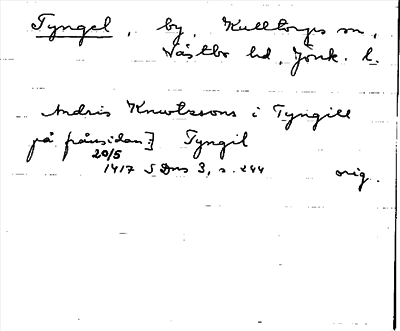 Tyngel, by, Kulltorps sn,
Västbo hd, Jönk. l.
Andris Knwtzsons i Tyngill
på frånsidan:] Tyngil
20/5
1417 SDns 3, s. 244 orig.